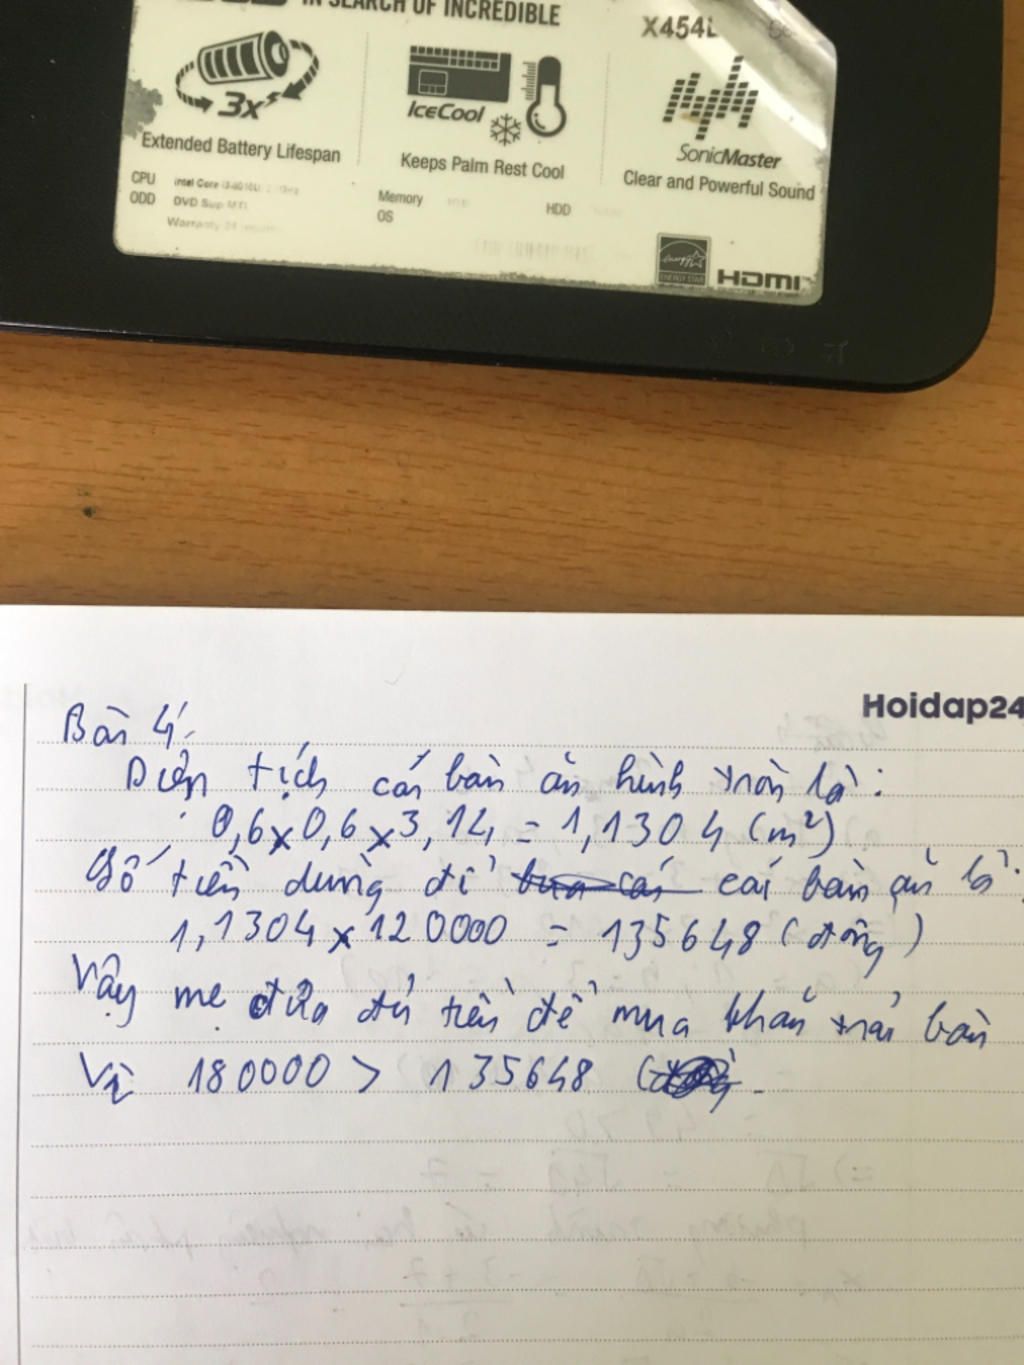 IN SEARCH OF INCREDIBLE
X454L
3x
IceCool
SonicMaster
Extended Battery Lifespan
Keeps Palm Rest Cool
Clear and Powerful Sound
CPU
Intel Core
Memory
HDD
ODD
DVD Sup
OS
Warranty 24
ENERGY STAR
HDMI
Hoidap24
Bài 4:
Diện tích cái bàn ăn hình tròn là:
0,6 x 0,6 x 3,14 = 1,1304 (m²)
Số tiền dùng để cái bàn ăn là:
1,1304 x 120000 = 135648 (đồng)
Vậy mẹ đưa đủ tiền để mua khăn trải bàn
Vì 180000 > 135648